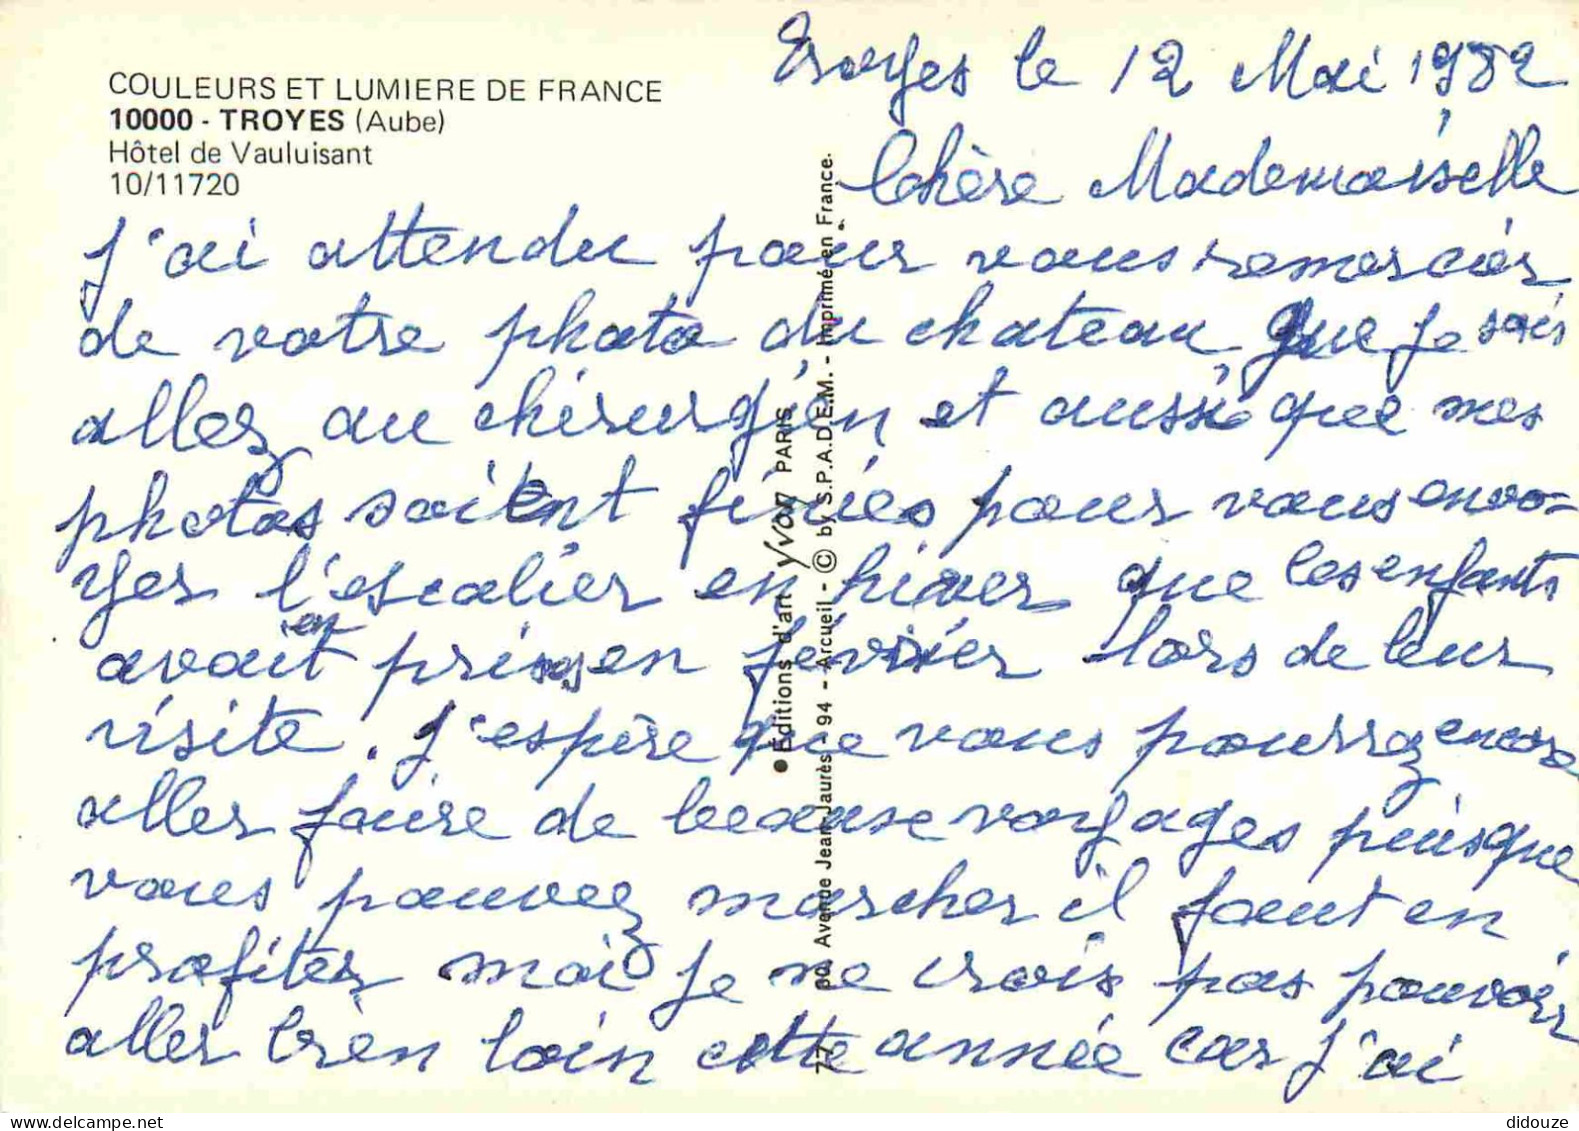 Troyes le 12 Mai 1982
COULEURS ET LUMIERE DE FRANCE
10000 - TROYES (Aube)
Hôtel de Vauluisant
10/11720
Chère Mademoiselle
J'ai attendu pour vous remercier
de votre photo du chateau que je sois
allez au chirurgien et aussi que mes
photos soient finies pour vous envo-
yer l'escalier en hiver que les enfants
avait pris en février lors de leur
visite. J'espère que vous pourrez encore
aller faire de beaux voyages puisque
vous pouvez marcher il faut en
profiter moi je ne crois pas pouvoir
aller bien loin cette année car j'ai
● Éditions d'art YVON PARIS
77, 80, Avenue Jean-Jaurès 94 - Arcueil - © by S.P.A.D.E.M. - Imprimé en France.
didouze